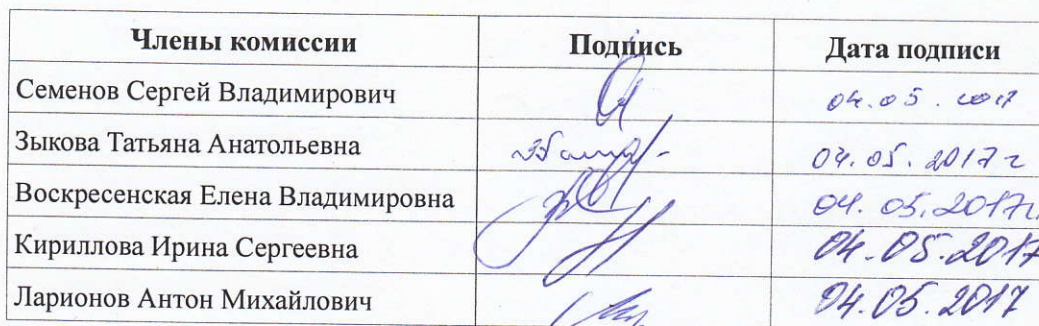 Члены комиссии Подпись Дата подписи
Семенов Сергей Владимирович 04.05.2017
Зыкова Татьяна Анатольевна 04.05.2017 г
Воскресенская Елена Владимировна 04.05.2017г.
Кириллова Ирина Сергеевна 04.05.2017
Ларионов Антон Михайлович 04.05.2017